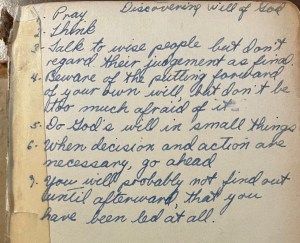 Discovering Will of God
1. Pray
2. Think
3. Talk to wise people but don't
regard their judgement as final
4. Beware of the putting forward
of your own will, but don't be
too much afraid of it
5. Do God's will in small things
6. When decision and action are
necessary, go ahead
7. You will probably not find out
until afterward, that you
have been led at all.